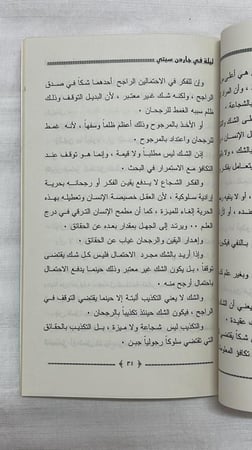 ليلة في جاردن سيتي
وإن للفكر في الاحتمالين الراجح أحدهما شكاً في صدق
الراجح ، ولكنه شك غير معتبر ، لأن البديل التوقف وذلك
ظلم سببه الغمط للرجحان .
أو الأخذ بالمرجوح وذلك أعظم ظلماً وسفهاً ، لأنه غمط
للرجحان واعتداد بالمرجوح .
إذن الشك ليس مطلباً ولا قيمة ، وإنما هو توقف عند
التكافؤ مع الاستمرار في البحث .
والفكر الشجاع لا يدفع يقين الفكر أو رجحانه بحرية
إرادية سلوكية ، لأن العقل خصيصة الإنسان وتعطيله بهذه
الحرية إلغاء للميزة ، كما أن مطمح الإنسان الترقي في درج
العلم .. ويرتد إلى الجهل بمقدار بعده عن الحقائق .
وإهدار اليقين والرجحان غياب عن الحقائق .
وإذا أريد بالشك مجرد الاحتمال فليس كل شك يقتضي
توقفاً ، بل يكون الشك غير معتبر وذلك حينما يندفع الاحتمال
باحتمال أرجح منه .
والشك لا يعني التكذيب ألبتة إلا حينما يقتضي التوقف في
الراجح ، فيكون الشك حينئذ تكذيباً بالرجحان .
والتكذيب ليس شجاعة ولا ميزة ، بل التكذيب بالحقائق
التي تقتضي سلوكاً رجولياً جبن .
٣٤